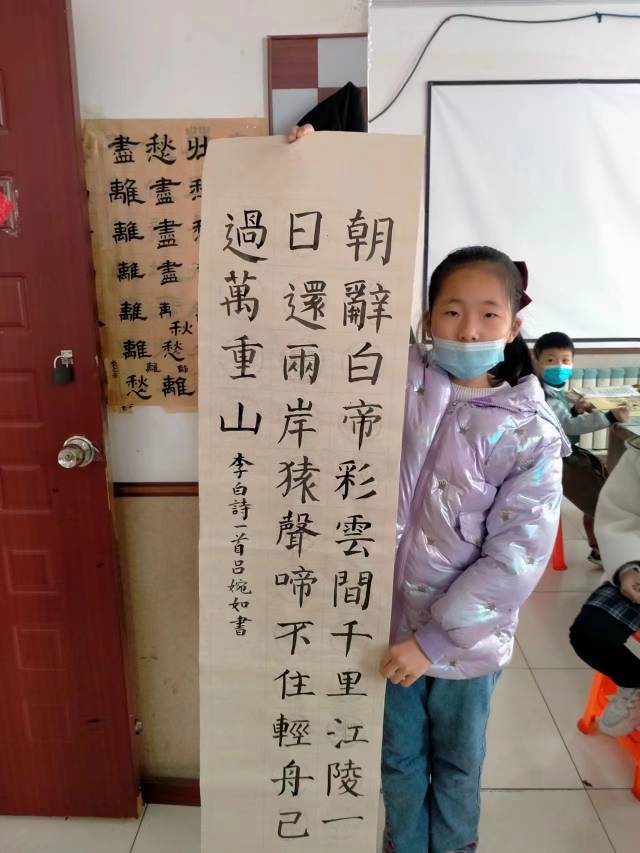 朝辭白帝彩雲間千里江陵一
日還兩岸猿聲啼不住輕舟已
過萬重山
李白詩一首吕婉如書
愁盡盡盡秋愁離
盡離離離離離愁